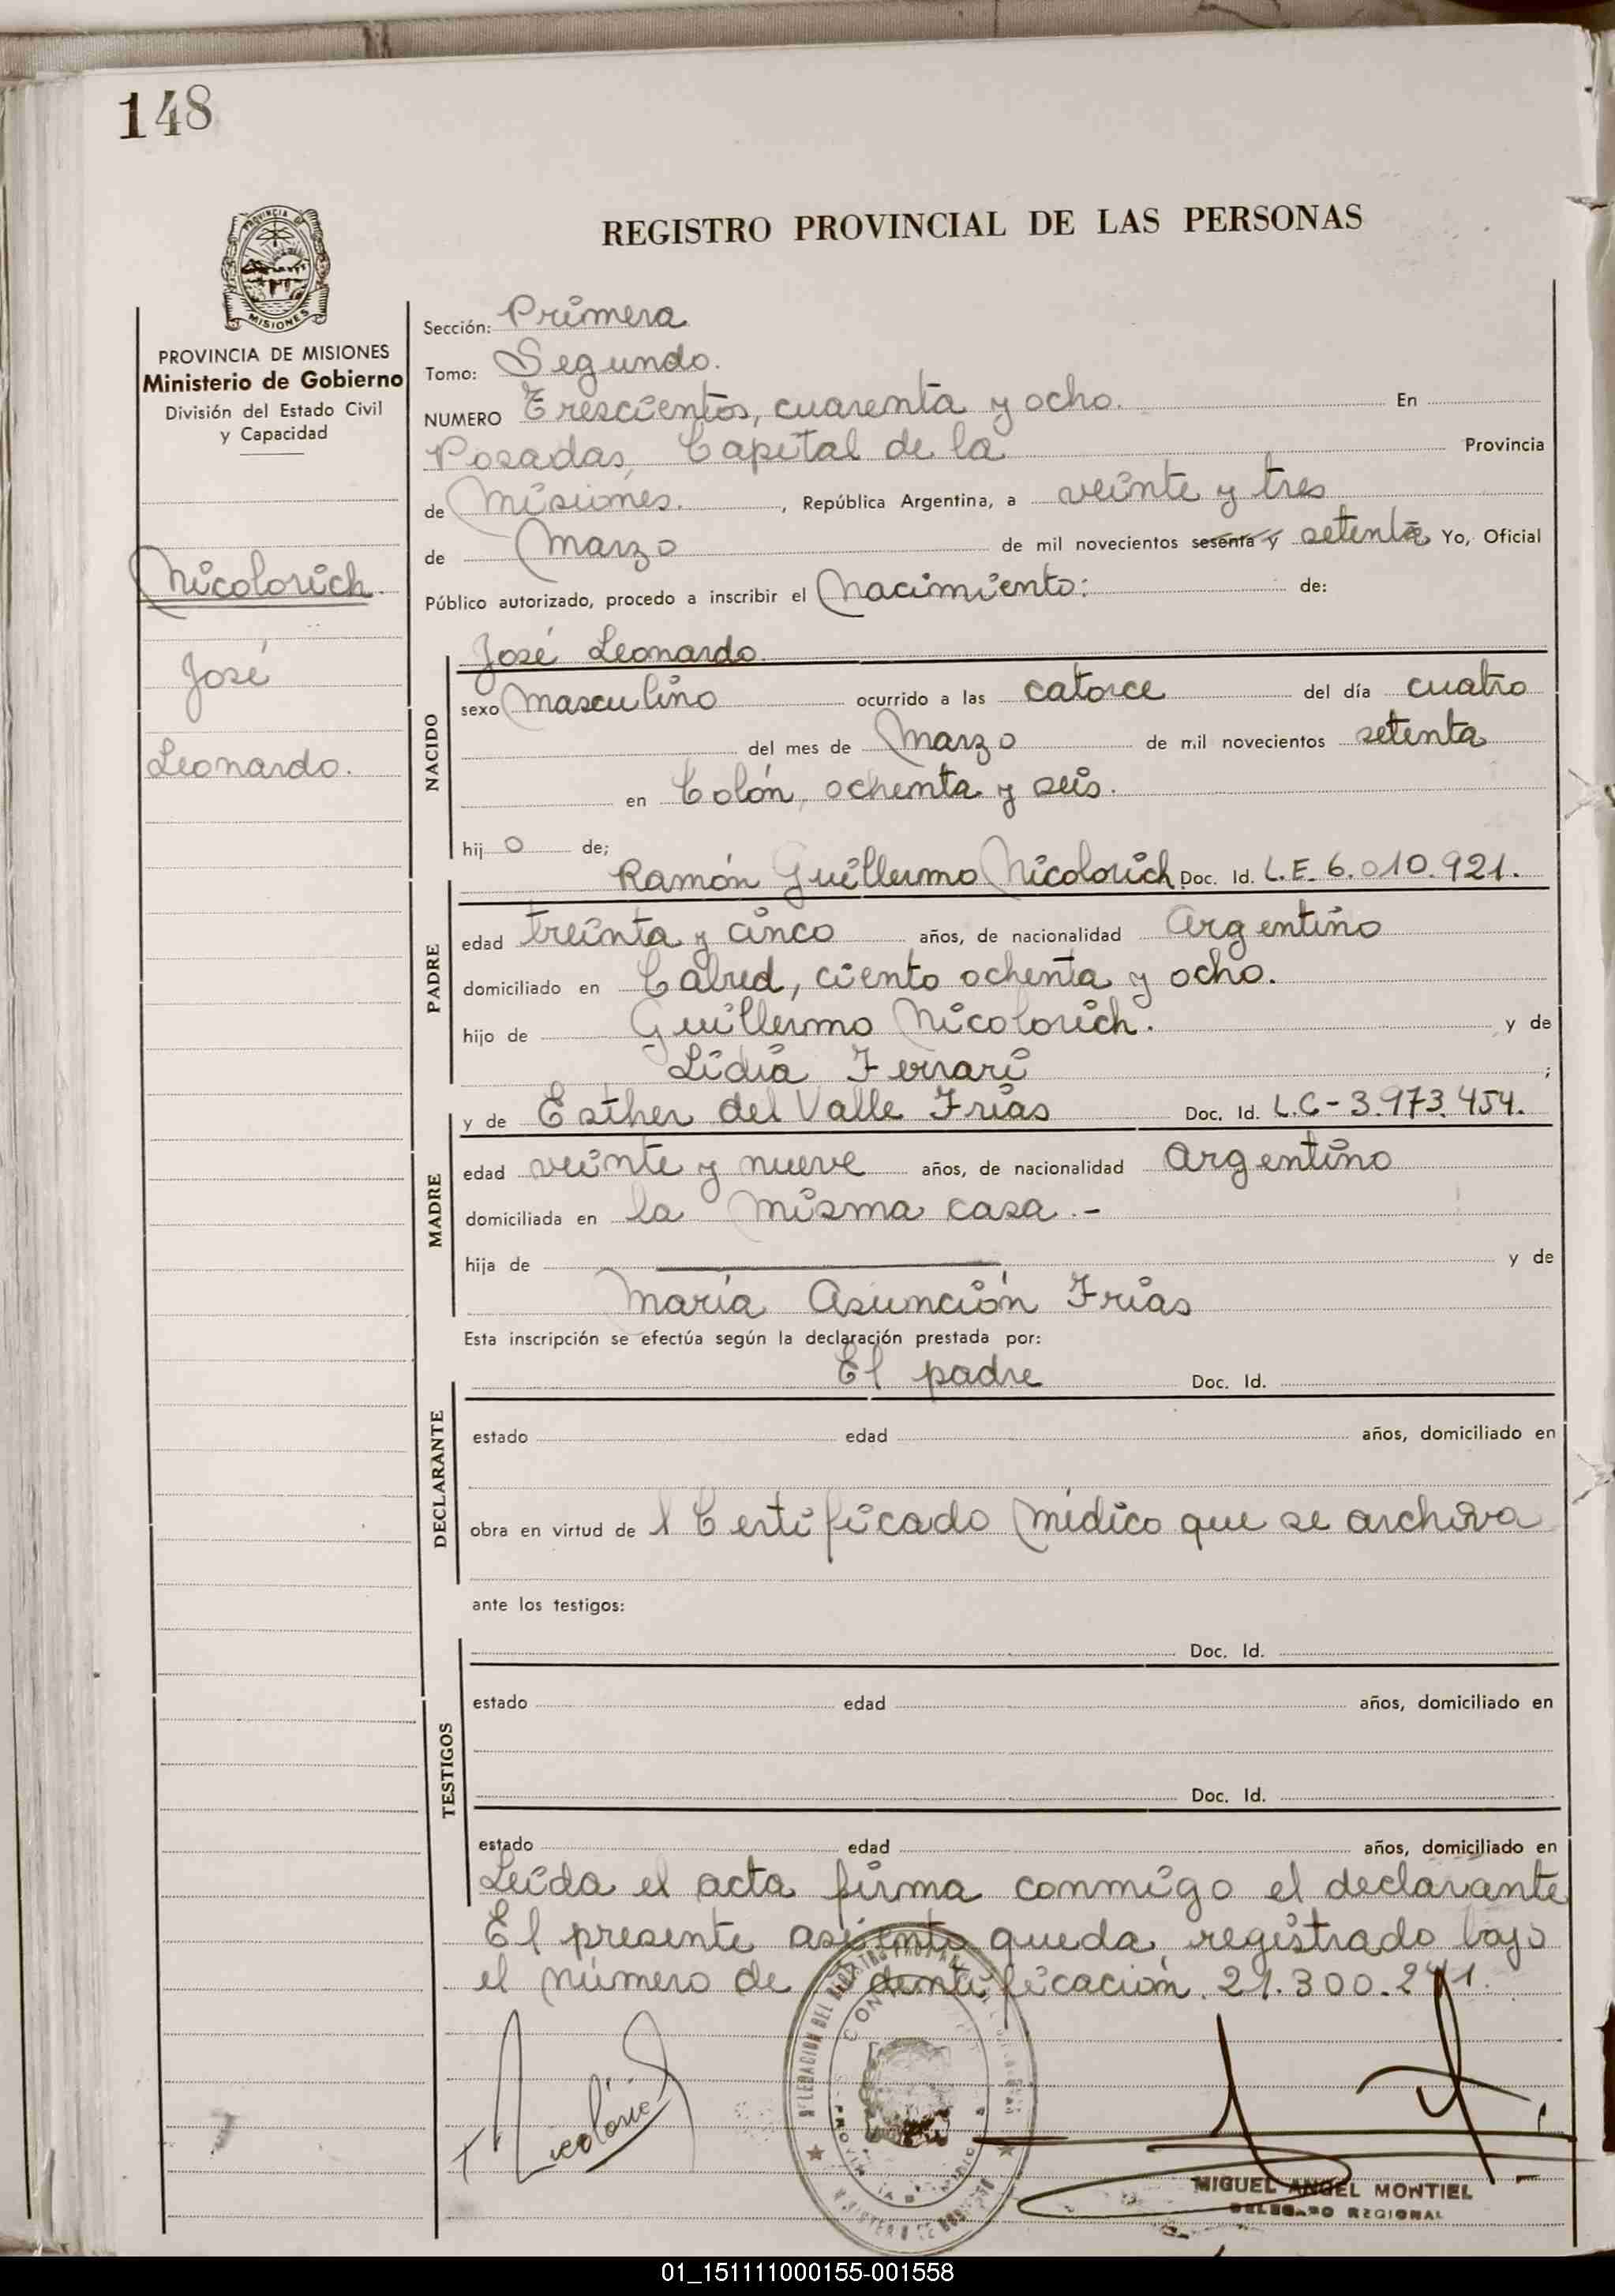 148
REGISTRO PROVINCIAL DE LAS PERSONAS
PROVINCIA DE MISIONES
Ministerio de Gobierno
División del Estado Civil
y Capacidad
Nicolorich.
José
Leonardo.
Sección: Primera
Tomo: Segundo.
NUMERO Trescientos, cuarenta y ocho. En
Posadas, Capital de la Provincia
de Misiones. , República Argentina, a veinte y tres
de Marzo de mil novecientos sesenta y setenta Yo, Oficial
Público autorizado, procedo a inscribir el Nacimiento: de:
NACIDO
José Leonardo
sexo Masculino ocurrido a las catorce del día cuatro
del mes de Marzo de mil novecientos setenta
en Colón, ochenta y seis.
hij o de;
PADRE
Ramón Guillermo Nicolorich Doc. Id. L.E. 6.010.921.
edad treinta y cinco años, de nacionalidad Argentino
domiciliado en Cabred, ciento ochenta y ocho.
hijo de Guillermo Nicolorich. y de
Lidia Ferrari ;
MADRE
y de Esther del Valle Frías Doc. Id. L.C-3.973.454.
edad veinte y nueve años, de nacionalidad Argentino
domiciliada en la misma casa.-
hija de y de
María Asunción Frías
Esta inscripción se efectúa según la declaración prestada por:
DECLARANTE
El padre Doc. Id.
estado edad años, domiciliado en
obra en virtud de l Certificado Médico que se archiva
ante los testigos:
TESTIGOS
Doc. Id.
estado edad años, domiciliado en
Doc. Id.
estado edad años, domiciliado en
Leída el acta firma conmigo el declarante
El presente asiento queda registrado bajo
el número de identificación. 21.300.241.
MIGUEL ANGEL MONTIEL
DELEGADO REGIONAL
01_151111000155-001558